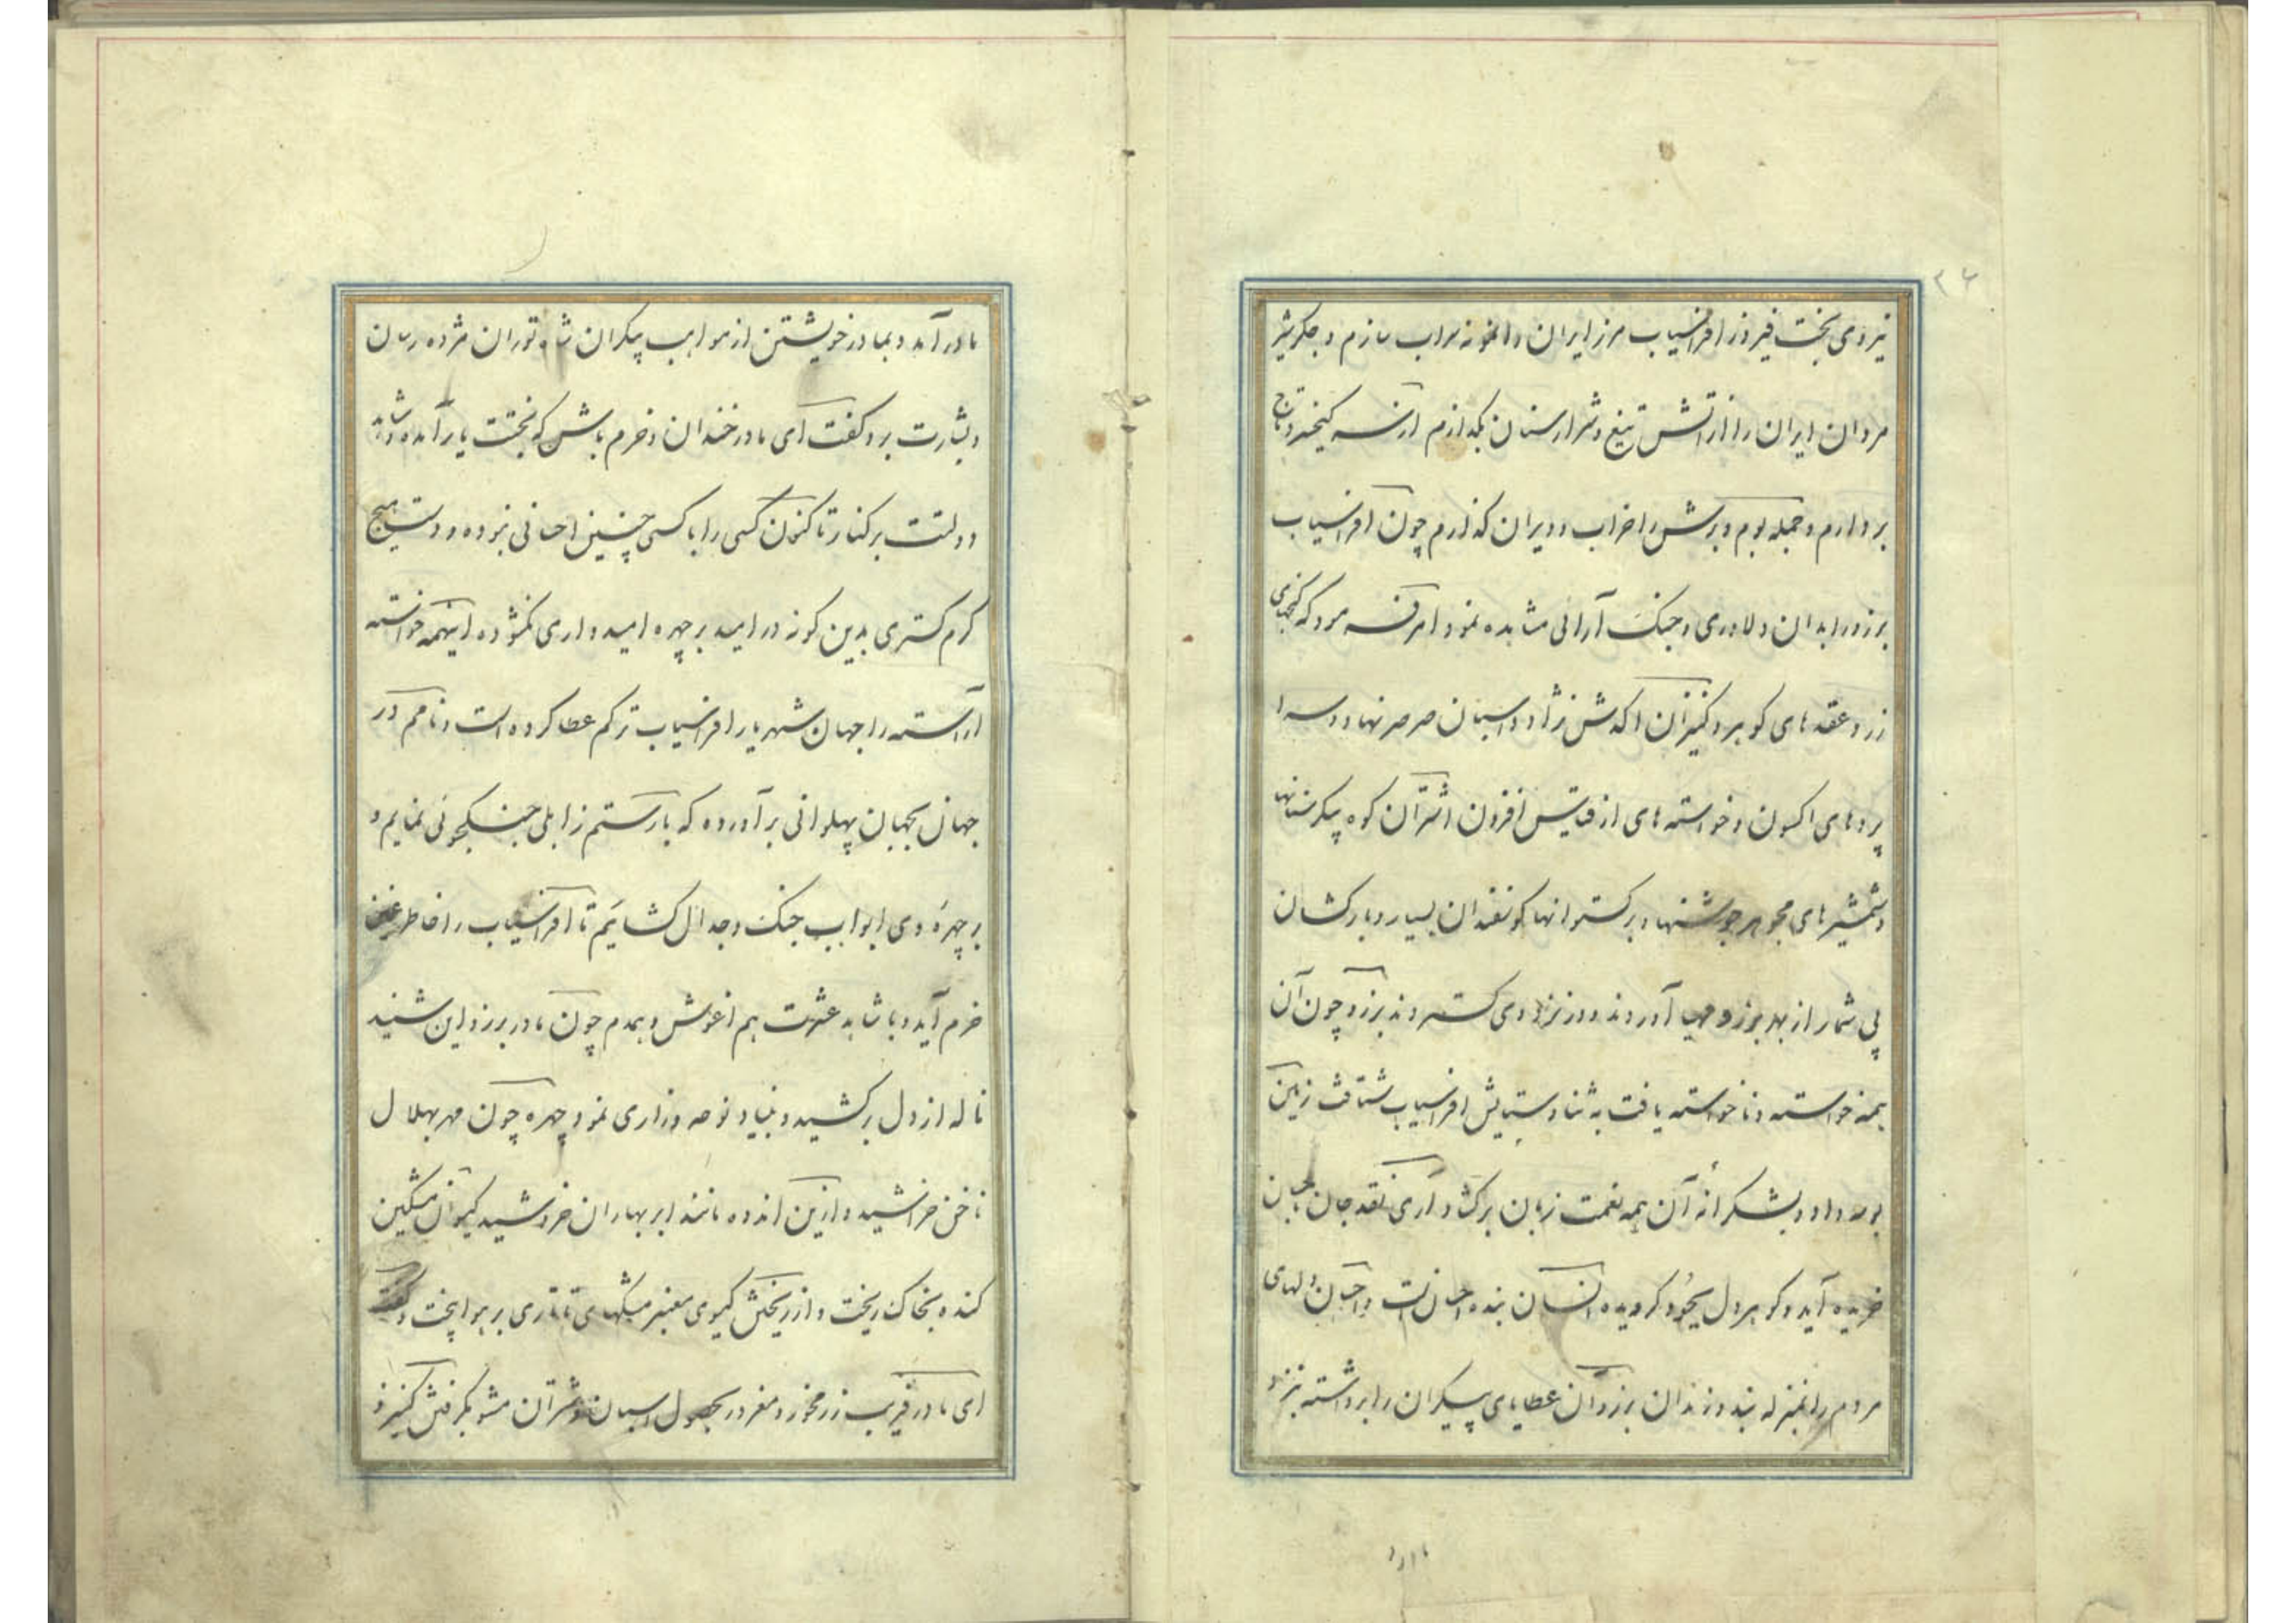 نیروی بخت فیروز افراسیاب مرز ایران را نمونه سراب سازم و جگر شیر
مردان ایران را از آتش تیغ و شرار سنان بگدازم از سر کیخسرو تاج
بردارم و جمله بوم و برش را خراب و ویران گذارم چون افراسیاب
برزو را بدان دلاوری و جنگ آرائی مشاهده نمود امر فرمود که گنجهای
زر و عقدهای گوهر و کنیزان اکدش نژاد و اسبان صرصر نهاد و سرا
پردهای اکسون و خواسته های از قیاس افزون اشتران کوه پیکر سنانها
و شمشیرهای مجوهر جوشنها و برگستوانها گوسفندان بسیار و بارکشان
بی شمار از بهر برزو آوردند و در نزد وی گستردند برزو چون آن
همه خواسته و ناخواسته یافت به ثنا و ستایش افراسیاب شتافت زمین
بوسه داد و بشکرانه آن همه نعمت زبان برگشاد آری نقد جان باحسان
خریده آید و گوهر دل بجود گرویده انسان بنده احسان است و احسان دلهای
مردم را بمنزله بند و زندان برزو آن عطایای بیکران را برداشته بنزد
مادر
مادر آمد و بمادر خویشتن از مواهب بیکران شاه توران مژده رسان
و بشارت بر و گفت ای مادر خندان و خرم باش که بختت یار آمده و شاهد
دولتت بر کنار تا کنون کسی را با کسی چنین احسانی نبوده و دست هیچ
کرم گستری بدین گونه در امید بر چهره امیدواری نگشوده اینهمه خواسته
آراسته را جهان شهریار افراسیاب ترکم عطا کرده است و نامم در
جهان بجهان پهلوانی برآورده که با رستم زابلی جنگجوئی نمایم و
بر چهره وی ابواب جنگ و جدال گشایم تا افراسیاب را خاطر غمین
خرم آید و با شاهد عشرت هم آغوش و همدم چون مادر برزو این شنید
ناله از دل برکشید و بنیاد نوحه و زاری نمود چهره چون مهر بهلال
ناخن خراشید و ازین اندوه مانند ابر بهاران خروشید گیسوان مشکین
کنده بخاک ریخت و از ریختن گیسوی معنبر مشکهای تاتاری بر هوا بیخت و گفت
ای مادر فریب زر مخور و مغرور بحصول اسبان و شتران مشو بگرفتن کنیز و